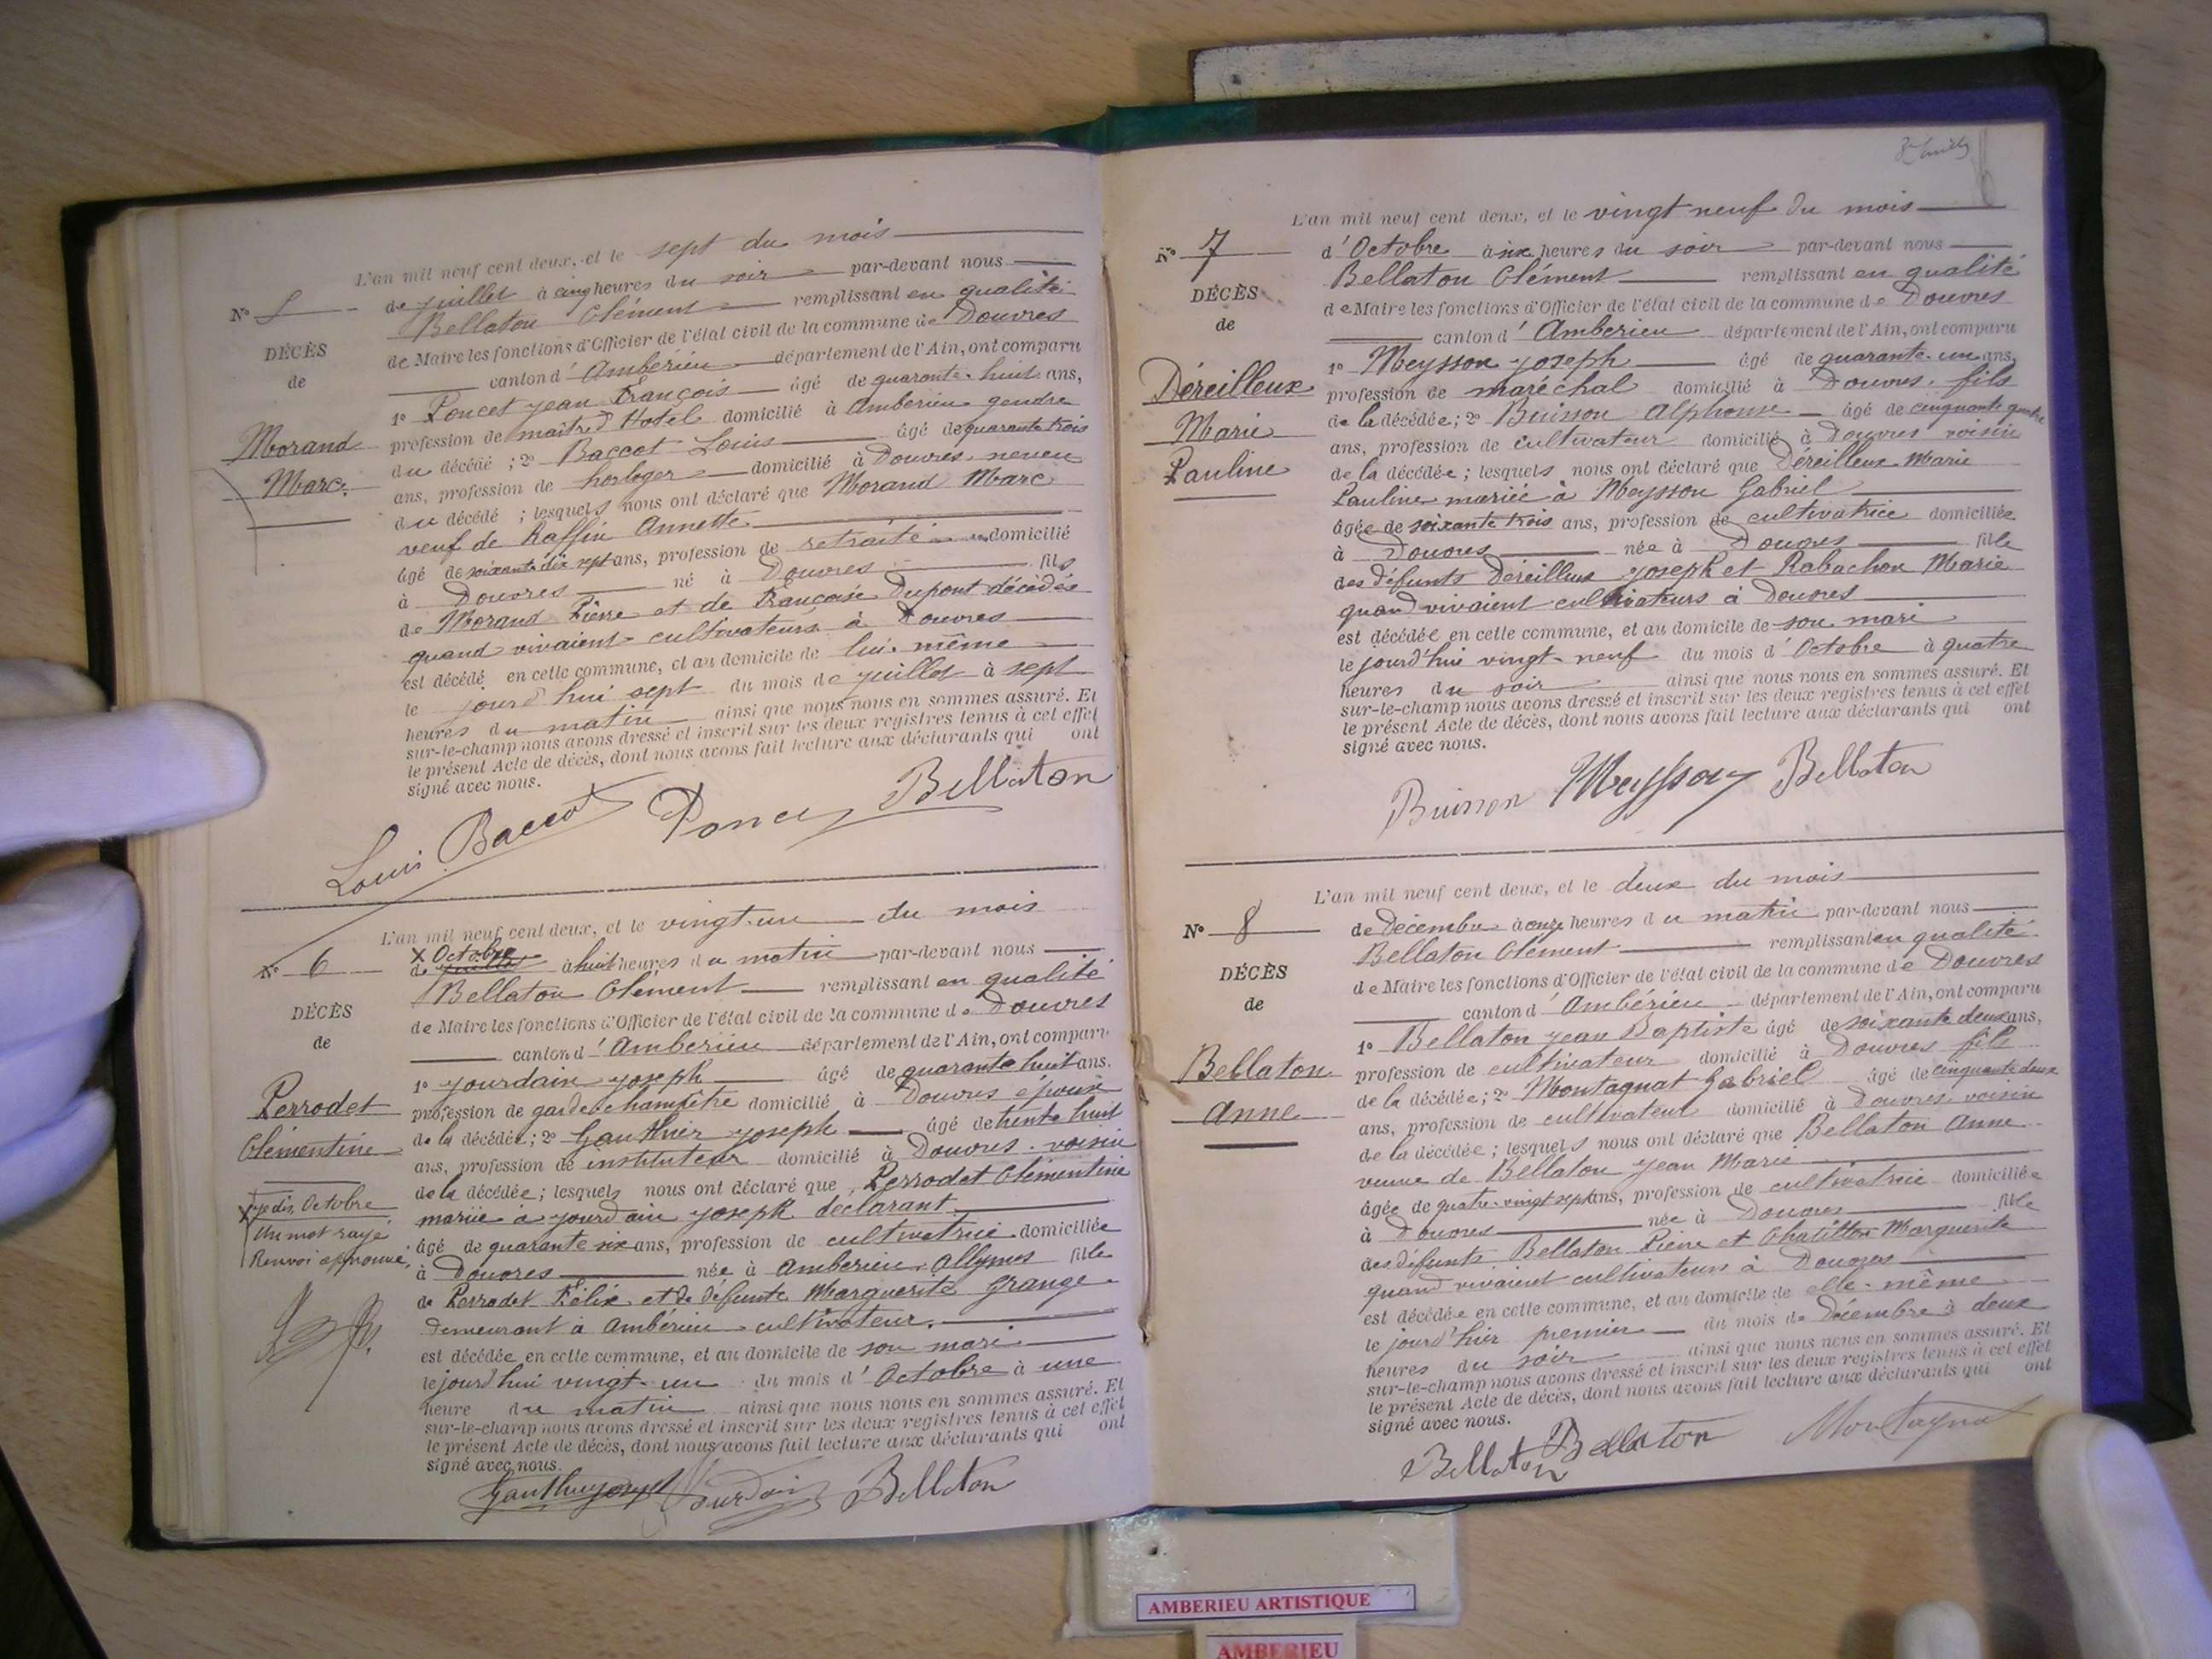 L'an mil neuf cent deux, et le sept du mois
N° 5
de juillet à cinq heures du soir par-devant nous
Bellaton Clément remplissant en qualité
DÉCÈS
de Maire les fonctions d'Officier de l'état civil de la commune de Douvres
de
canton d'Ambérieu département de l'Ain, ont comparu
1° Poncet Jean François âgé de quarante-huit ans,
Morand
profession de maître d'Hotel domicilié à Amberieu gendre
du décédé ; 2° Baccot Louis âgé de quarante trois
Marc.
ans, profession de horloger domicilié à Douvres neveu
du décédé ; lesquels nous ont déclaré que Morand Marc
veuf de Raffin Annette
âgé de soixante dix sept ans, profession de retraité domicilié
à Douvres né à Douvres fils
de Morand Pierre et de Françoise Dupont décédés
quand vivaient cultivateurs à Douvres
est décédé en cette commune, et au domicile de lui-même
le jourd'hui sept du mois de juillet à sept
heures du matin ainsi que nous nous en sommes assuré. Et
sur-le-champ nous avons dressé et inscrit sur les deux registres tenus à cet effet
le présent Acte de décès, dont nous avons fait lecture aux déclarants qui ont
signé avec nous.
Louis Baccot Poncet Bellaton
L'an mil neuf cent deux, et le vingt-un du mois
X Octobre
N° 6
de juillet à huit heures du matin par-devant nous
Bellaton Clément remplissant en qualité
DÉCÈS
de Maire les fonctions d'Officier de l'état civil de la commune de Douvres
de
canton d'Ambérieu département de l'Ain, ont comparu
1° Jourdain Joseph âgé de quarante huit ans.
Perrodet
profession de garde champêtre domicilié à Douvres époux
Clémentine
de la décédée ; 2° Gauthier Joseph âgé de trente huit
ans, profession de instituteur domicilié à Douvres voisin
de la décédée ; lesquels nous ont déclaré que Perrodet Clémentine
mariée à Jourdain Joseph déclarant
X je dis, Octobre
Un mot rayé
Renvoi approuvé.
âgé de quarante six ans, profession de cultivatrice domiciliée
à Douvres née à Amberieu, Allymes fille
de Perrodet Félix et de défunte Marguerite Grange
demeurant à Ambérieu cultivateur.
est décédée en cette commune, et au domicile de son mari
le jourd'hui vingt-un du mois d'Octobre à une
heure du matin ainsi que nous nous en sommes assuré. Et
sur-le-champ nous avons dressé et inscrit sur les deux registres tenus à cet effet
le présent Acte de décès, dont nous avons fait lecture aux déclarants qui ont
signé avec nous.
Gauthier Joseph Jourdain Bellaton
L'an mil neuf cent deux, et le vingt neuf du mois
N° 7
d'Octobre à six heures du soir par-devant nous
Bellaton Clément remplissant en qualité
DÉCÈS
de Maire les fonctions d'Officier de l'état civil de la commune de Douvres
de
canton d'Amberieu département de l'Ain, ont comparu
1° Meysson Joseph âgé de quarante-un ans,
Déreilleux
profession de maréchal domicilié à Douvres, fils
Marie
de la décédée ; 2° Buisson Alphonse âgé de cinquante quatre
ans, profession de cultivateur domicilié à Douvres voisin
Pauline
de la décédée ; lesquels nous ont déclaré que Déreilleux Marie
Pauline mariée à Meysson Gabriel
âgée de soixante trois ans, profession de cultivatrice domiciliée
à Douvres née à Douvres fille
des défunts Déreilleux Joseph et Rabachon Marie
quand vivaient cultivateurs à Douvres
est décédée en cette commune, et au domicile de son mari
le jourd'hui vingt-neuf du mois d'Octobre à quatre
heures du soir ainsi que nous nous en sommes assuré. Et
sur-le-champ nous avons dressé et inscrit sur les deux registres tenus à cet effet
le présent Acte de décès, dont nous avons fait lecture aux déclarants qui ont
signé avec nous.
Buisson Meysson Bellaton
L'an mil neuf cent deux, et le deux du mois
N° 8
de Décembre à onze heures du matin par-devant nous
Bellaton Clément remplissant en qualité
DÉCÈS
de Maire les fonctions d'Officier de l'état civil de la commune de Douvres
de
canton d'Ambérieu département de l'Ain, ont comparu
1° Bellaton Jean Baptiste âgé de soixante deux ans,
Bellaton
profession de cultivateur domicilié à Douvres fils
de la décédée ; 2° Montagnat Gabriel âgé de cinquante deux
Anne
ans, profession de cultivateur domicilié à Douvres voisin
de la décédée ; lesquels nous ont déclaré que Bellaton Anne
veuve de Bellaton Jean Marie
âgée de quatre-vingt sept ans, profession de cultivatrice domiciliée
à Douvres née à Douvres fille
des défunts Bellaton Pierre et Chatillon Marguerite
quand vivaient cultivateurs à Douvres
est décédée en cette commune, et au domicile de elle-même
le jourd'hier premier du mois de Décembre à deux
heures du soir ainsi que nous nous en sommes assuré. Et
sur-le-champ nous avons dressé et inscrit sur les deux registres tenus à cet effet
le présent Acte de décès, dont nous avons fait lecture aux déclarants qui ont
signé avec nous.
Bellaton Bellaton Montagnat
AMBERIEU ARTISTIQUE
AMBERIEU